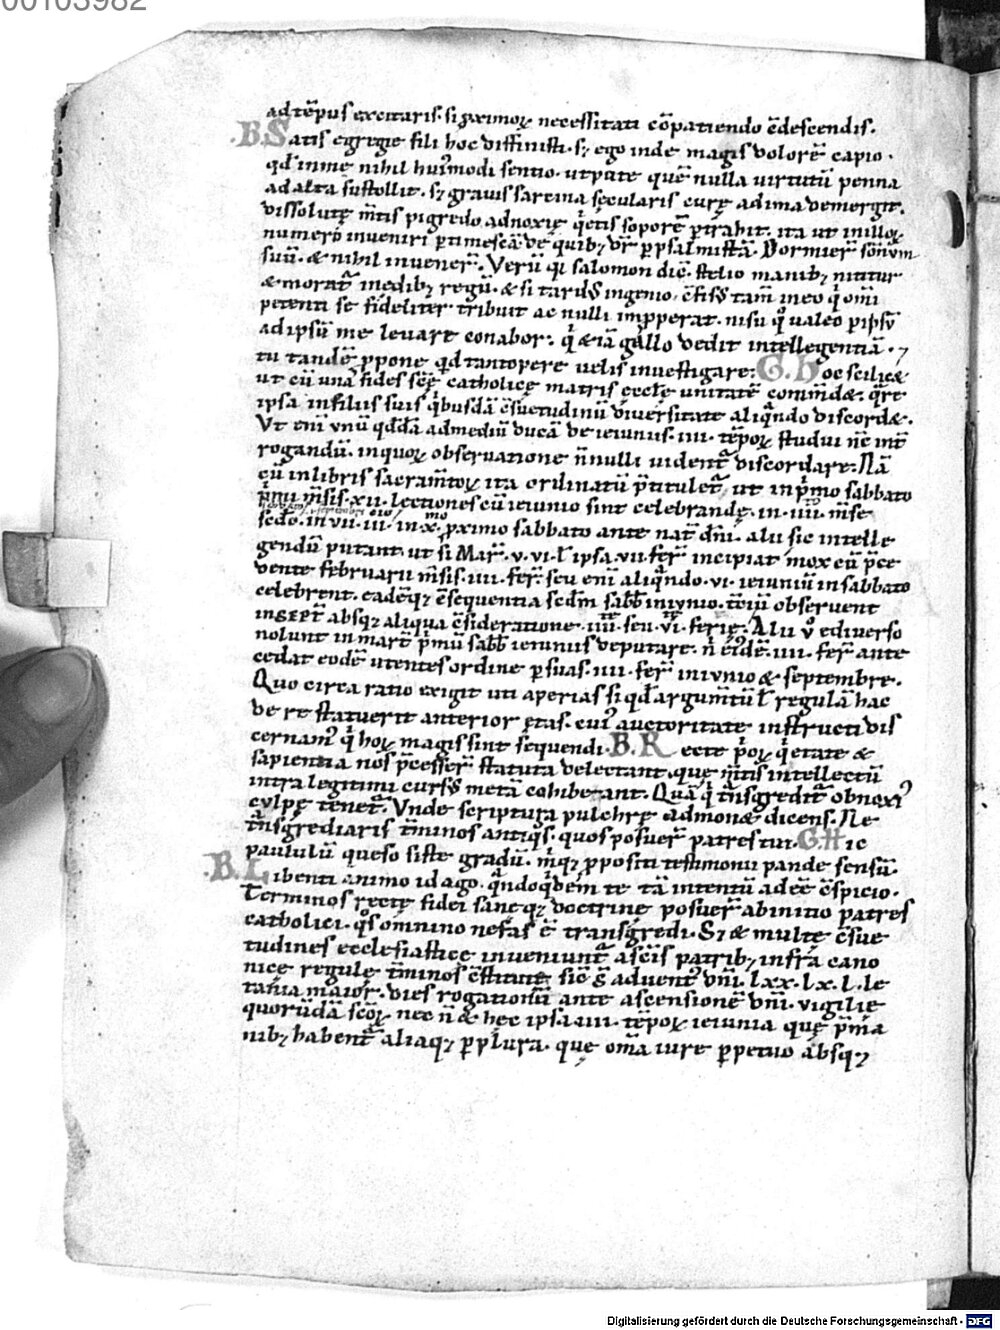 00103982
ad tēpus excitaris. si ꝓximoꝝ necessitati cōpatiendo ↄ̄descendis.
.B. Satis egregie fili hoc diffinisti. sꝫ ego inde magis dolorē capio.
qd̄ in me nihil huiꝰmodi sentio. utpute quē nulla virtutū penna
ad alta sustollit. sꝫ gravis sartina sęcularis curę ad ima demergit.
dissolutę m̄tis pigredo. ad noxię q̇etis soporē ꝑtrahit. ita ut in illoꝝ
numero inveniri ꝑtimescā de quibꝫ dr̄ ꝑ psalmistā. Dormier̄ sōnum
suū. & nihil invener̄. Verū qi salomon dic̄. stelio manibꝫ nititur
& morat̄ in edibꝫ regū. & si tardꝰ ingenio, ↄ̄fisꝰ tam̄ in eo q̇ om̄i
petenti se fideliter tribuit ac nulli impꝑerat. nisu qͦ valeo ꝑ ipsū
ad ipsū me levare conabor. q̇ & iā gallo dedit intellegentiā. ⁊
tu tandē ꝓpone qd̄ tantopere velis investigare: G. Hoc scilic&
ut cū una fides sc̄ę catholicę matris ęccłę unitatē comm̄d&. q̄re
ipsa in filiis suis q̇busdā ↄ̄suetudinū diversitate aliq̄ndo discord&.
Ut eni unū qd̄dā ad mediū ducā de ieiuniis .iiii. tēpoꝝ studui n̄c int̄
rogandū. in quoꝝ observatione n̄nulli vident̄ discordare. Nā
cū in libris sacram̄toꝝ ita ordinatū p̄titulet̄. ut in ṗmo sabbato
ṗmi m̄sis .xii. lectiones cū ieiunio sint celebrandę. in .iiii. m̄se
scd̄o. in .vii. iii. in .x.mo ꝓximo sabbato ante nat̄ dn̄i. alii sic intelle
gendū putant. ut si Mar̄. v. vi. ł ipsa .vii. fer̄ incipiat mox eū p̄ce
dente februarii m̄sis .iiii. fer̄. seu eni aliq̄ndo .vi. ieiuniū in sabbato
celebrent. eadēqꝫ ↄ̄sequentia scd̄m sabb̄ in iunio. t̄ciū observent
in sept̄ absqꝫ aliqua ↄ̄sideratione .iiii. seu .vi. ferię. Alii v̊ e diverso
nolunt in mart̄ ṗmū sabb̄ ieiuniis deputare. n̄ ei̇dē .iiii. fer̄ ante
cedat eodē utentes ordine ꝑ suas .iiii. fer̄ in iunio & septembre.
Quo circa ratio exigit uti aperias si qd̄ argum̄tū ł regulā hac
de re statuerit anterior ętas. cuiꝰ auctoritate instructi dis
cernamꝰ q̇ hoꝝ magis sint sequendi. B. Recte ṗoꝝ q̇ etate &
sapientia nos p̄cesser̄ statuta delectant. quę m̄tis intellectū
intra legitimi cursꝰ metā cohibeant. Quā q̇ t̄nsgredit̄ obnoxiꝰ
culpę tenet̄. Unde scriptura pulchre admon& dicens. Ne
t̄nsgrediaris t̄minos antiq̊s. quos posuer̄ patres tui. G. Hic
paululū queso siste gradū. m̄qꝫ ꝓpositi testimonii pande sensū.
.B. Libenti animo id ago. q̄ndoq̇dem te tā intentū adeē ↄ̄spicio.
Terminos rectę fidei sanęqꝫ doctrinę posuer̄ ab initio patres
catholici. q̊s omnino nefas ē transgredi. Sꝫ & multę ↄ̄sue
tudines ecclesiasticę inveniunt̄ a sc̄is patribꝫ infra cano
nicę regulę t̄minos ↄ̄stitutę. sic ē adventꝰ dn̄i. lxx. lx. l. le
tania maior. dies rogationū ante ascensionē dn̄i. vigilię
quorūdā sc̄oꝝ. nec n̄ & hęc ipsa .iiii. tēpoꝝ ieiunia quę p̄ma
nibꝫ habent̄ aliaqꝫ ꝑplura. quę om̄a iure ꝑpetuo absqꝫ
Digitalisierung gefördert durch die Deutsche Forschungsgemeinschaft - DFG